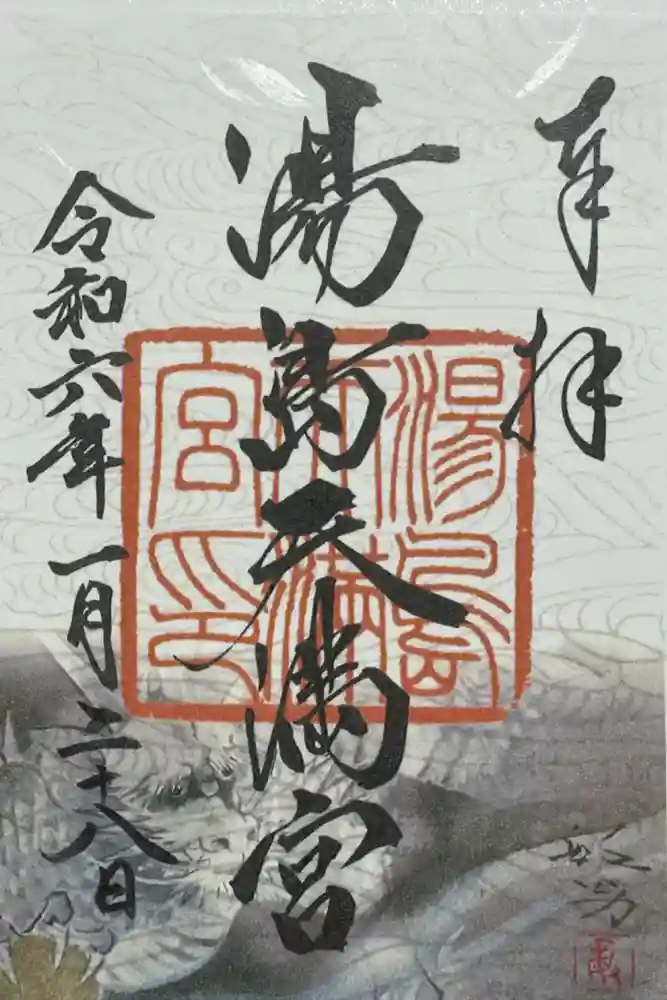 奉拝
湯島天満宮
湯島天満宮印
令和六年一月二十八日